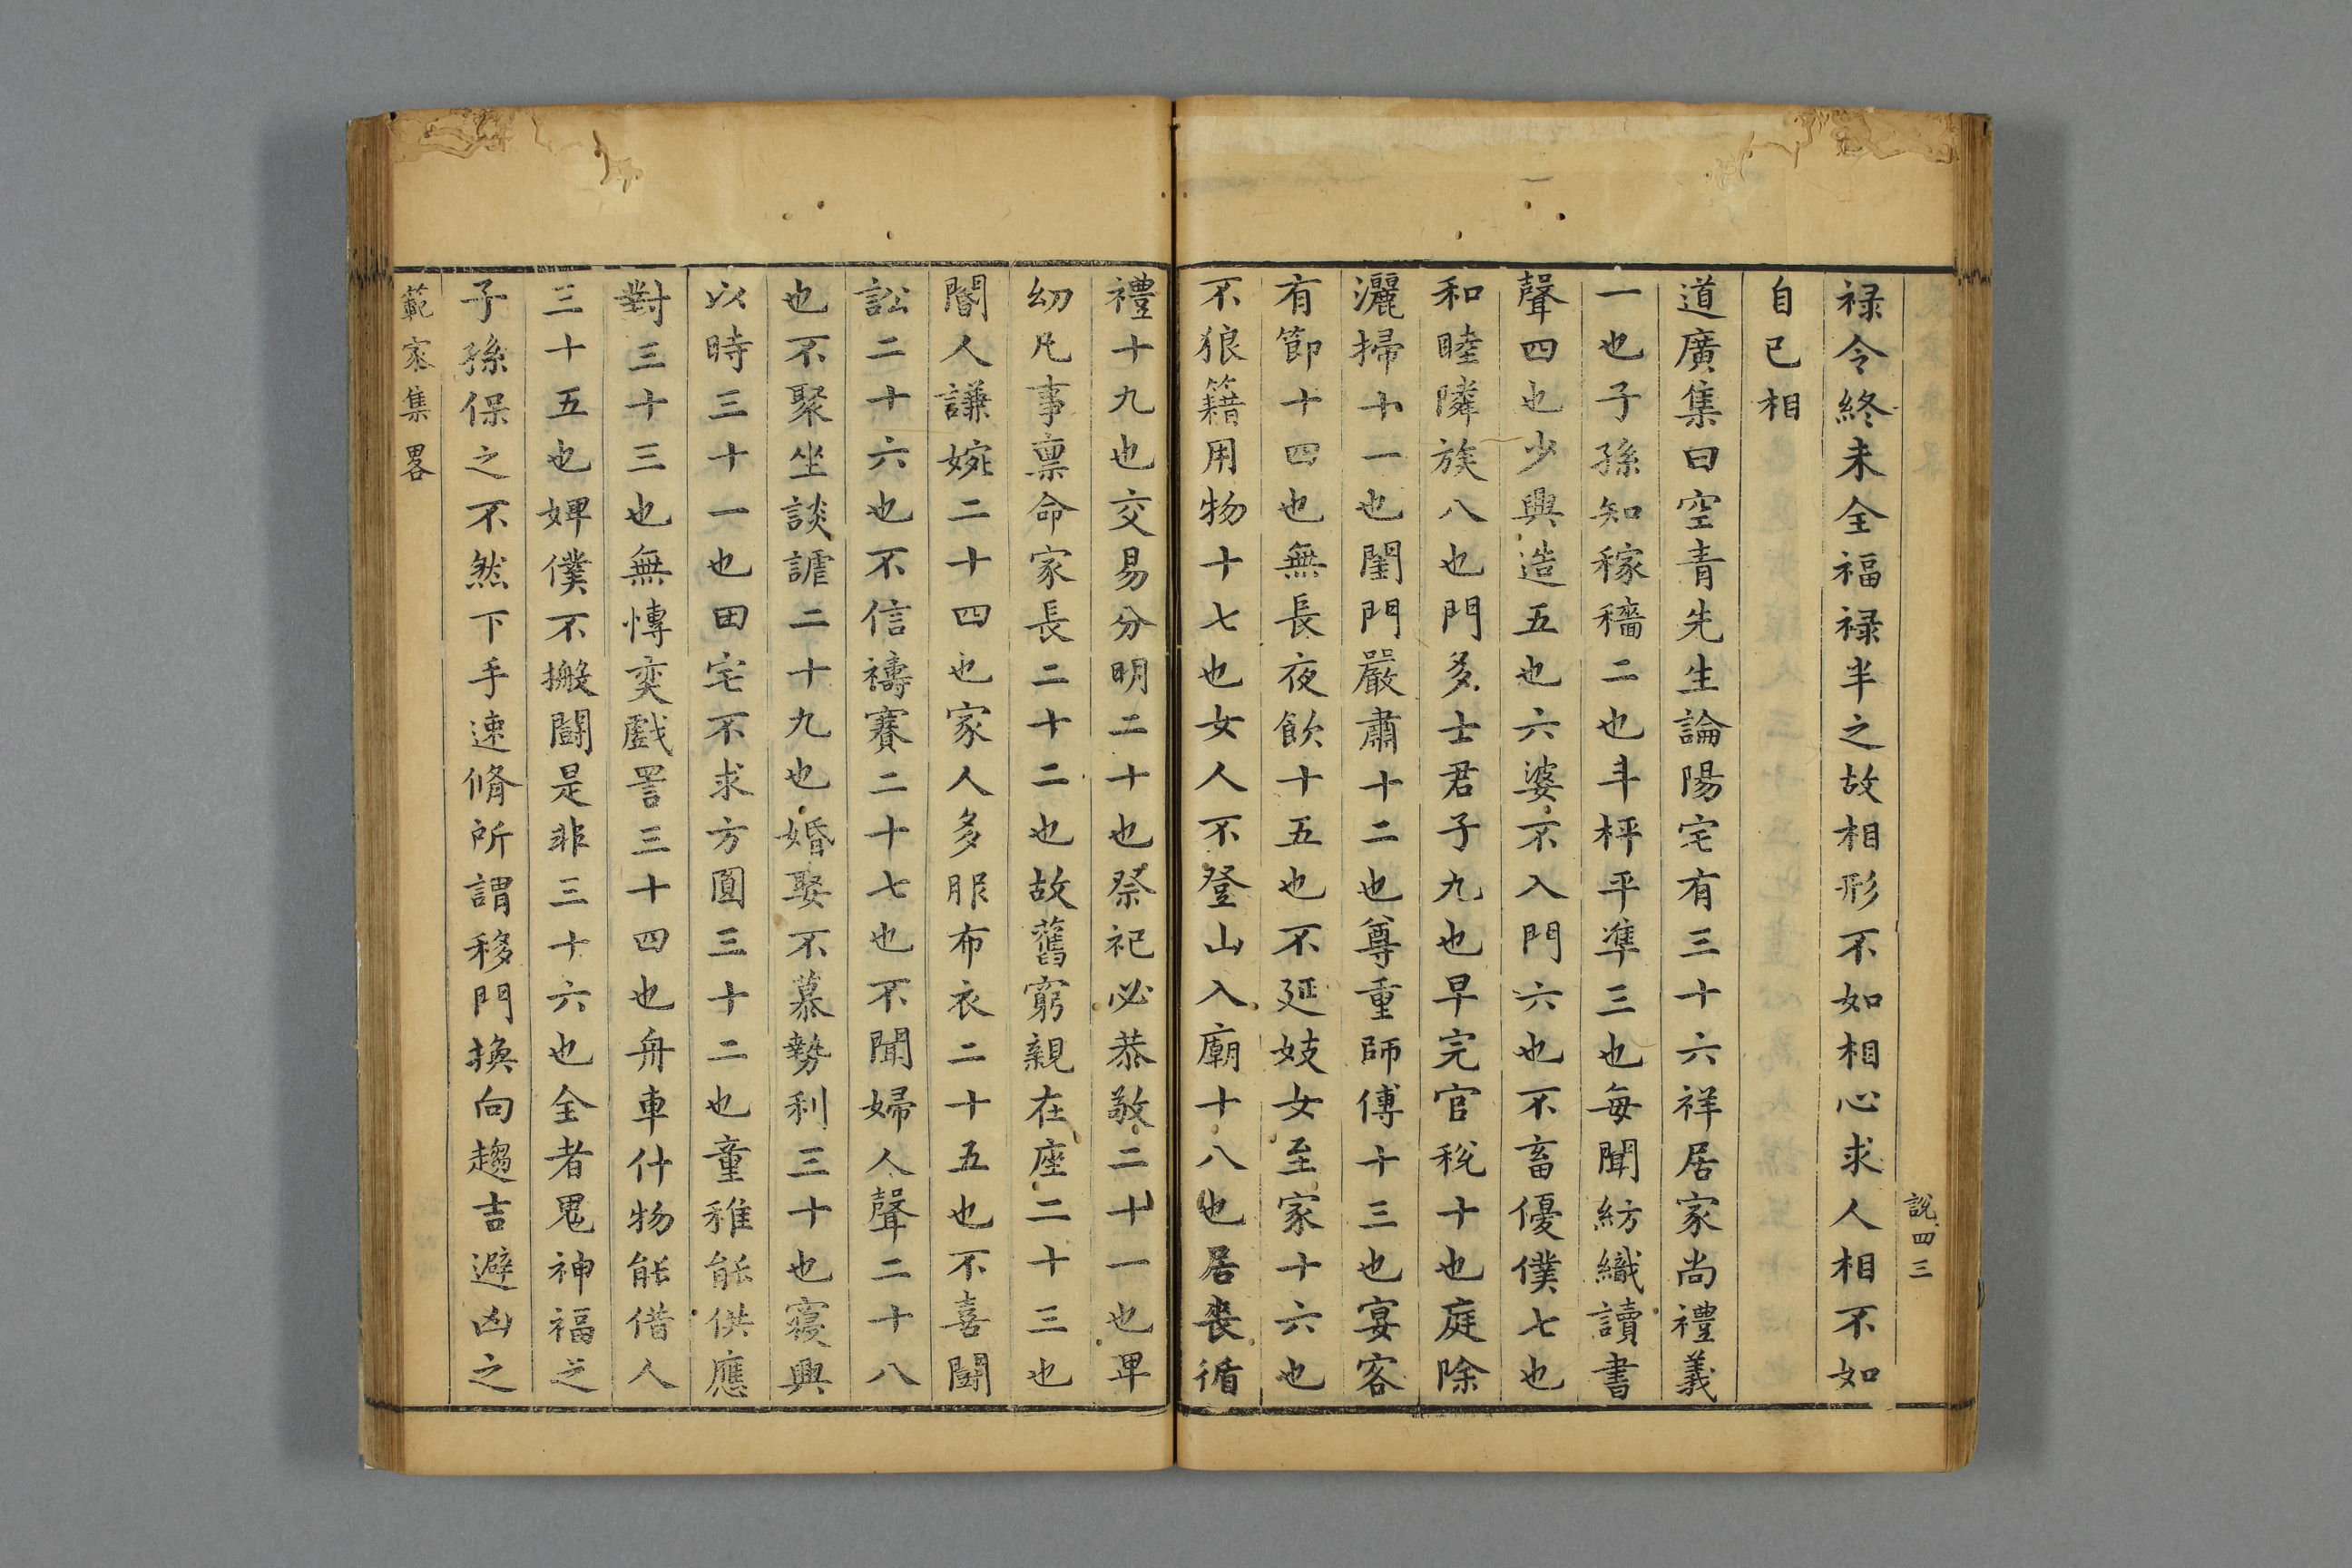 說四三
禄令終未全福禄半之故相形不如相心求人相不如
自己相
道廣集曰空青先生論陽宅有三十六祥居家尚禮義
一也子孫知稼穡二也斗枰平準三也每聞紡織讀書
聲四也少興造五也六婆不入門六也不畜優僕七也
和睦隣族八也門多士君子九也早完官稅十也庭除
灑掃十一也閨門嚴肅十二也尊重師傅十三也宴客
有節十四也無長夜飲十五也不延妓女至家十六也
不狼籍用物十七也女人不登山入廟十八也居喪循
禮十九也交易分明二十也祭祀必恭敬二十一也卑
幼凡事禀命家長二十二也故舊窮親在座二十三也
閽人謙婉二十四也家人多服布衣二十五也不喜鬭
訟二十六也不信禱賽二十七也不聞婦人聲二十八
也不聚坐談謔二十九也婚娶不慕勢利三十也寢興
以時三十一也田宅不求方圓三十二也童稚能供應
對三十三也無慱奕戲詈三十四也舟車什物能借人
三十五也婢僕不搬鬭是非三十六也全者鬼神福之
子孫保之不然下手速脩所謂移門換向趨吉避凶之
範家集畧